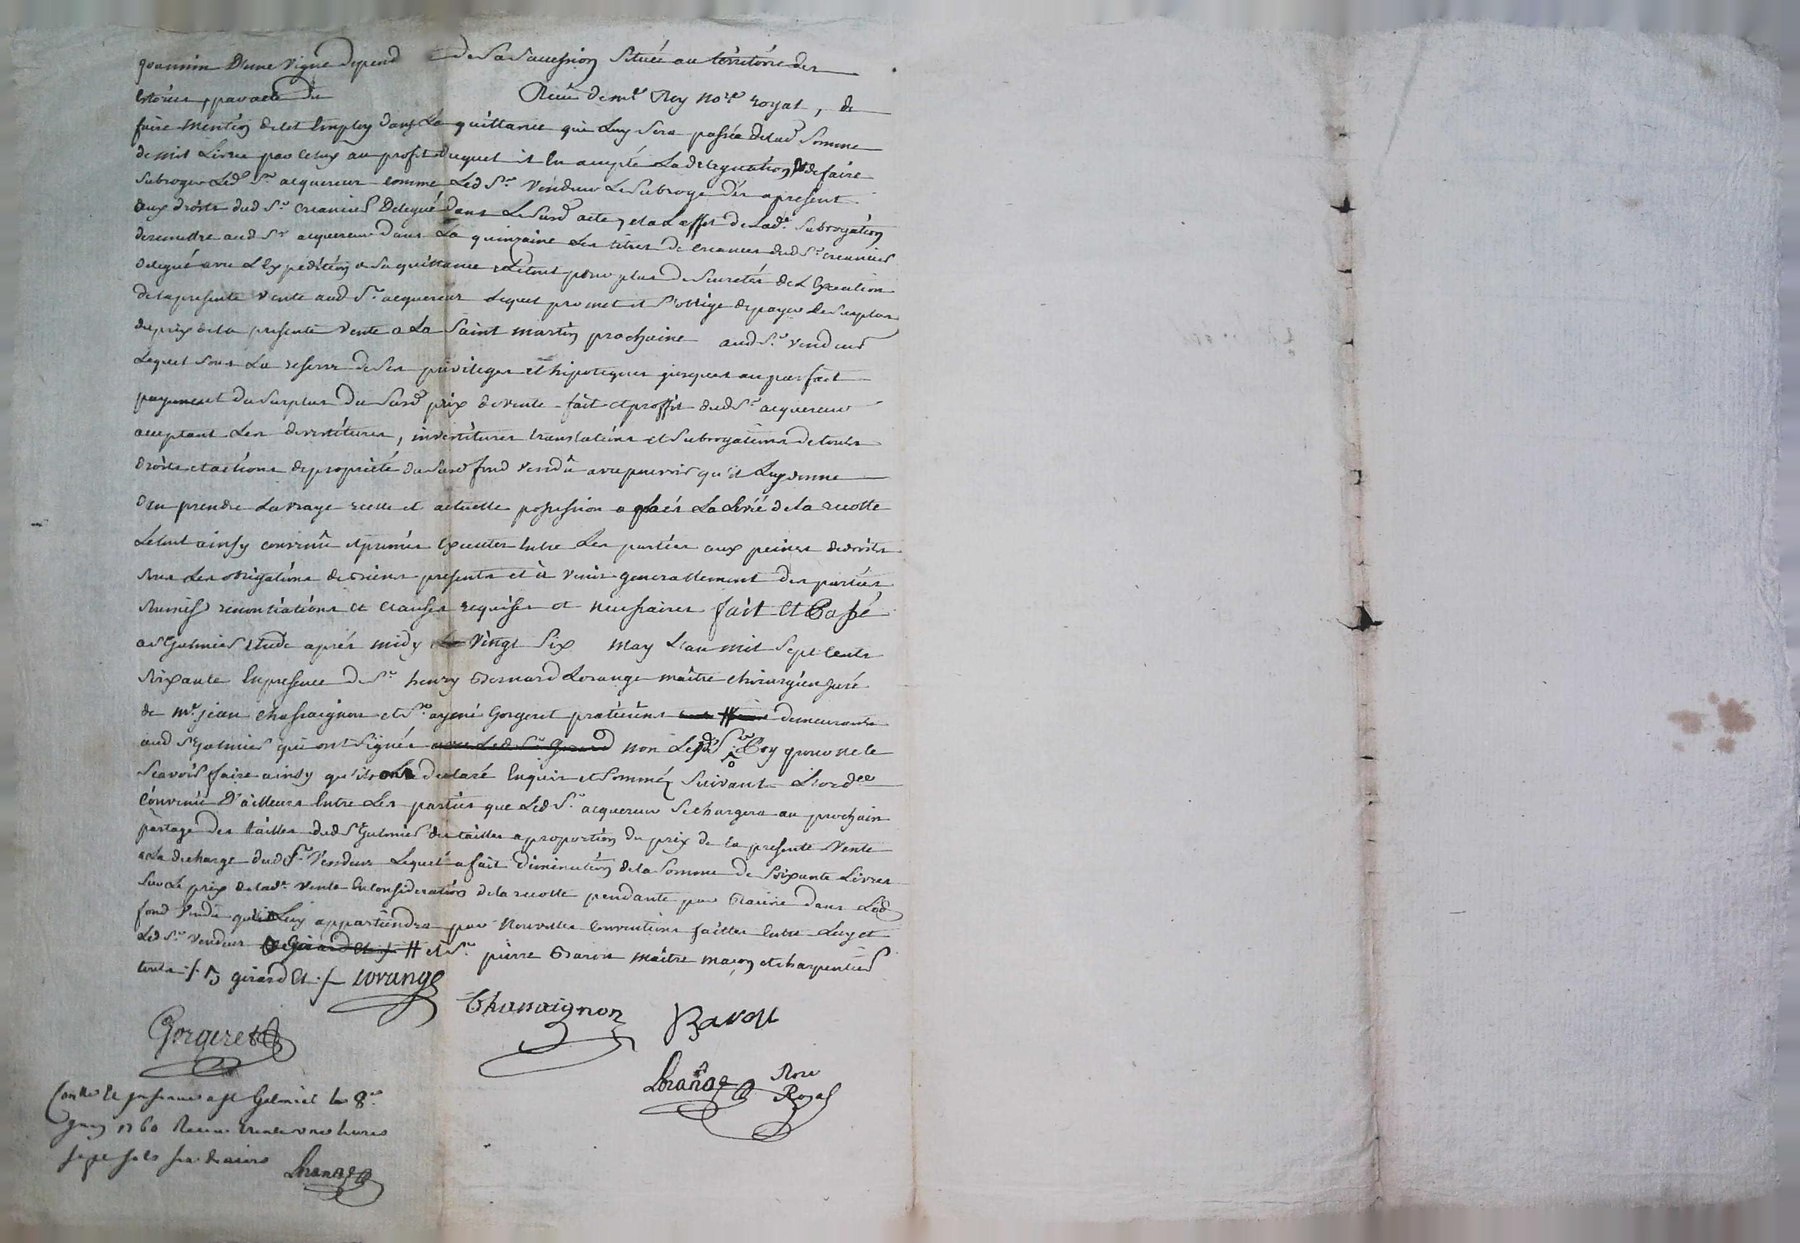 D'une vigne depend de sa succession située au térritoire des
par acte du Recu de me Rey nore royal, de
faire mention dudt Employ dans La quittance qui Luy sera passée de lad somme
de mil Livres par celuy au profit duquel il En accepté La delegation, de faire
subroger Led Sr acquereur comme Led Sr vendeur Le subroge dés apresent
aux droits dud Sr creancier Delegué dans Le susd acte, et a L'effet de Lade subrogation
de remettre aud Sr acquereur dans La quinzaine Les titres de creances dud Sr creancier
delegué avec L'Expédition de sa quittance Le tout pour plus de sureté de L'Execution
de la presente vente aud Sr acquereur Lequel promet et s'oblige de payer Le surplus
du prix de la presente vente a La Saint martin prochaine aud Sr vendeur
Lequel sous La reserve de ses privileges et hipoteques jusques au parfait
payement du surplus du susd prix de vente fait et proffit dud Sr acquereur
acceptant Les devestitures, investitures translations et subrogations de touts
droits et actions de propriété du susd fond vendû avec pouvoir qu'il Luy donne
d'en prendre La vraye réelle et actuelle possession aprés La Levée de la recolte
Le tout ainsy convenû et promis Executer Entre Les parties aux peines de droits
sous Les obligations de biens presents et à venir generallement des parties
soumis renontiations et clauses requises et necessaires fait et Passé
a St Galmier Etude aprés midy Le vingt six may L'an mil sept cents
soixante En presence de Sr henry Bernard Lorange maître chirurgien juré
de mr jean chassaignon et Sr aymé Gorgeret praticiens demeurants
aud St Galmier qui ont signés avec Led Sr Girard non Led Sr Roy pour ne le
scavoir faire ainsy qu'il a declaré Enquis et sommés suivant L'ordce
convenû D'ailleurs Entre Les parties que Led Sr acquereur se chargera au prochain
partage des tailles dud St Galmier des tailles a proportion du prix de la presente vente
a La decharge dud Sr Vendeur Lequel a fait diminution de la somme de soixante Livres
sur Le prix de lade vente En consideration de la recolte pendante par racine dans Led
fond vendû qui Luy appartiendra par Nouvelles conventions faittes Entre Luy et
Led Sr vendeur et Sr pierre Baron maître maçon et charpentier
girard Et Lorange
Chassaignon Baron
Gorgeret
Lorange Nore Royal
Conllé Et a St Galmier Le 8e
juin 1760 Receu
sept sols six deniers
Lorange